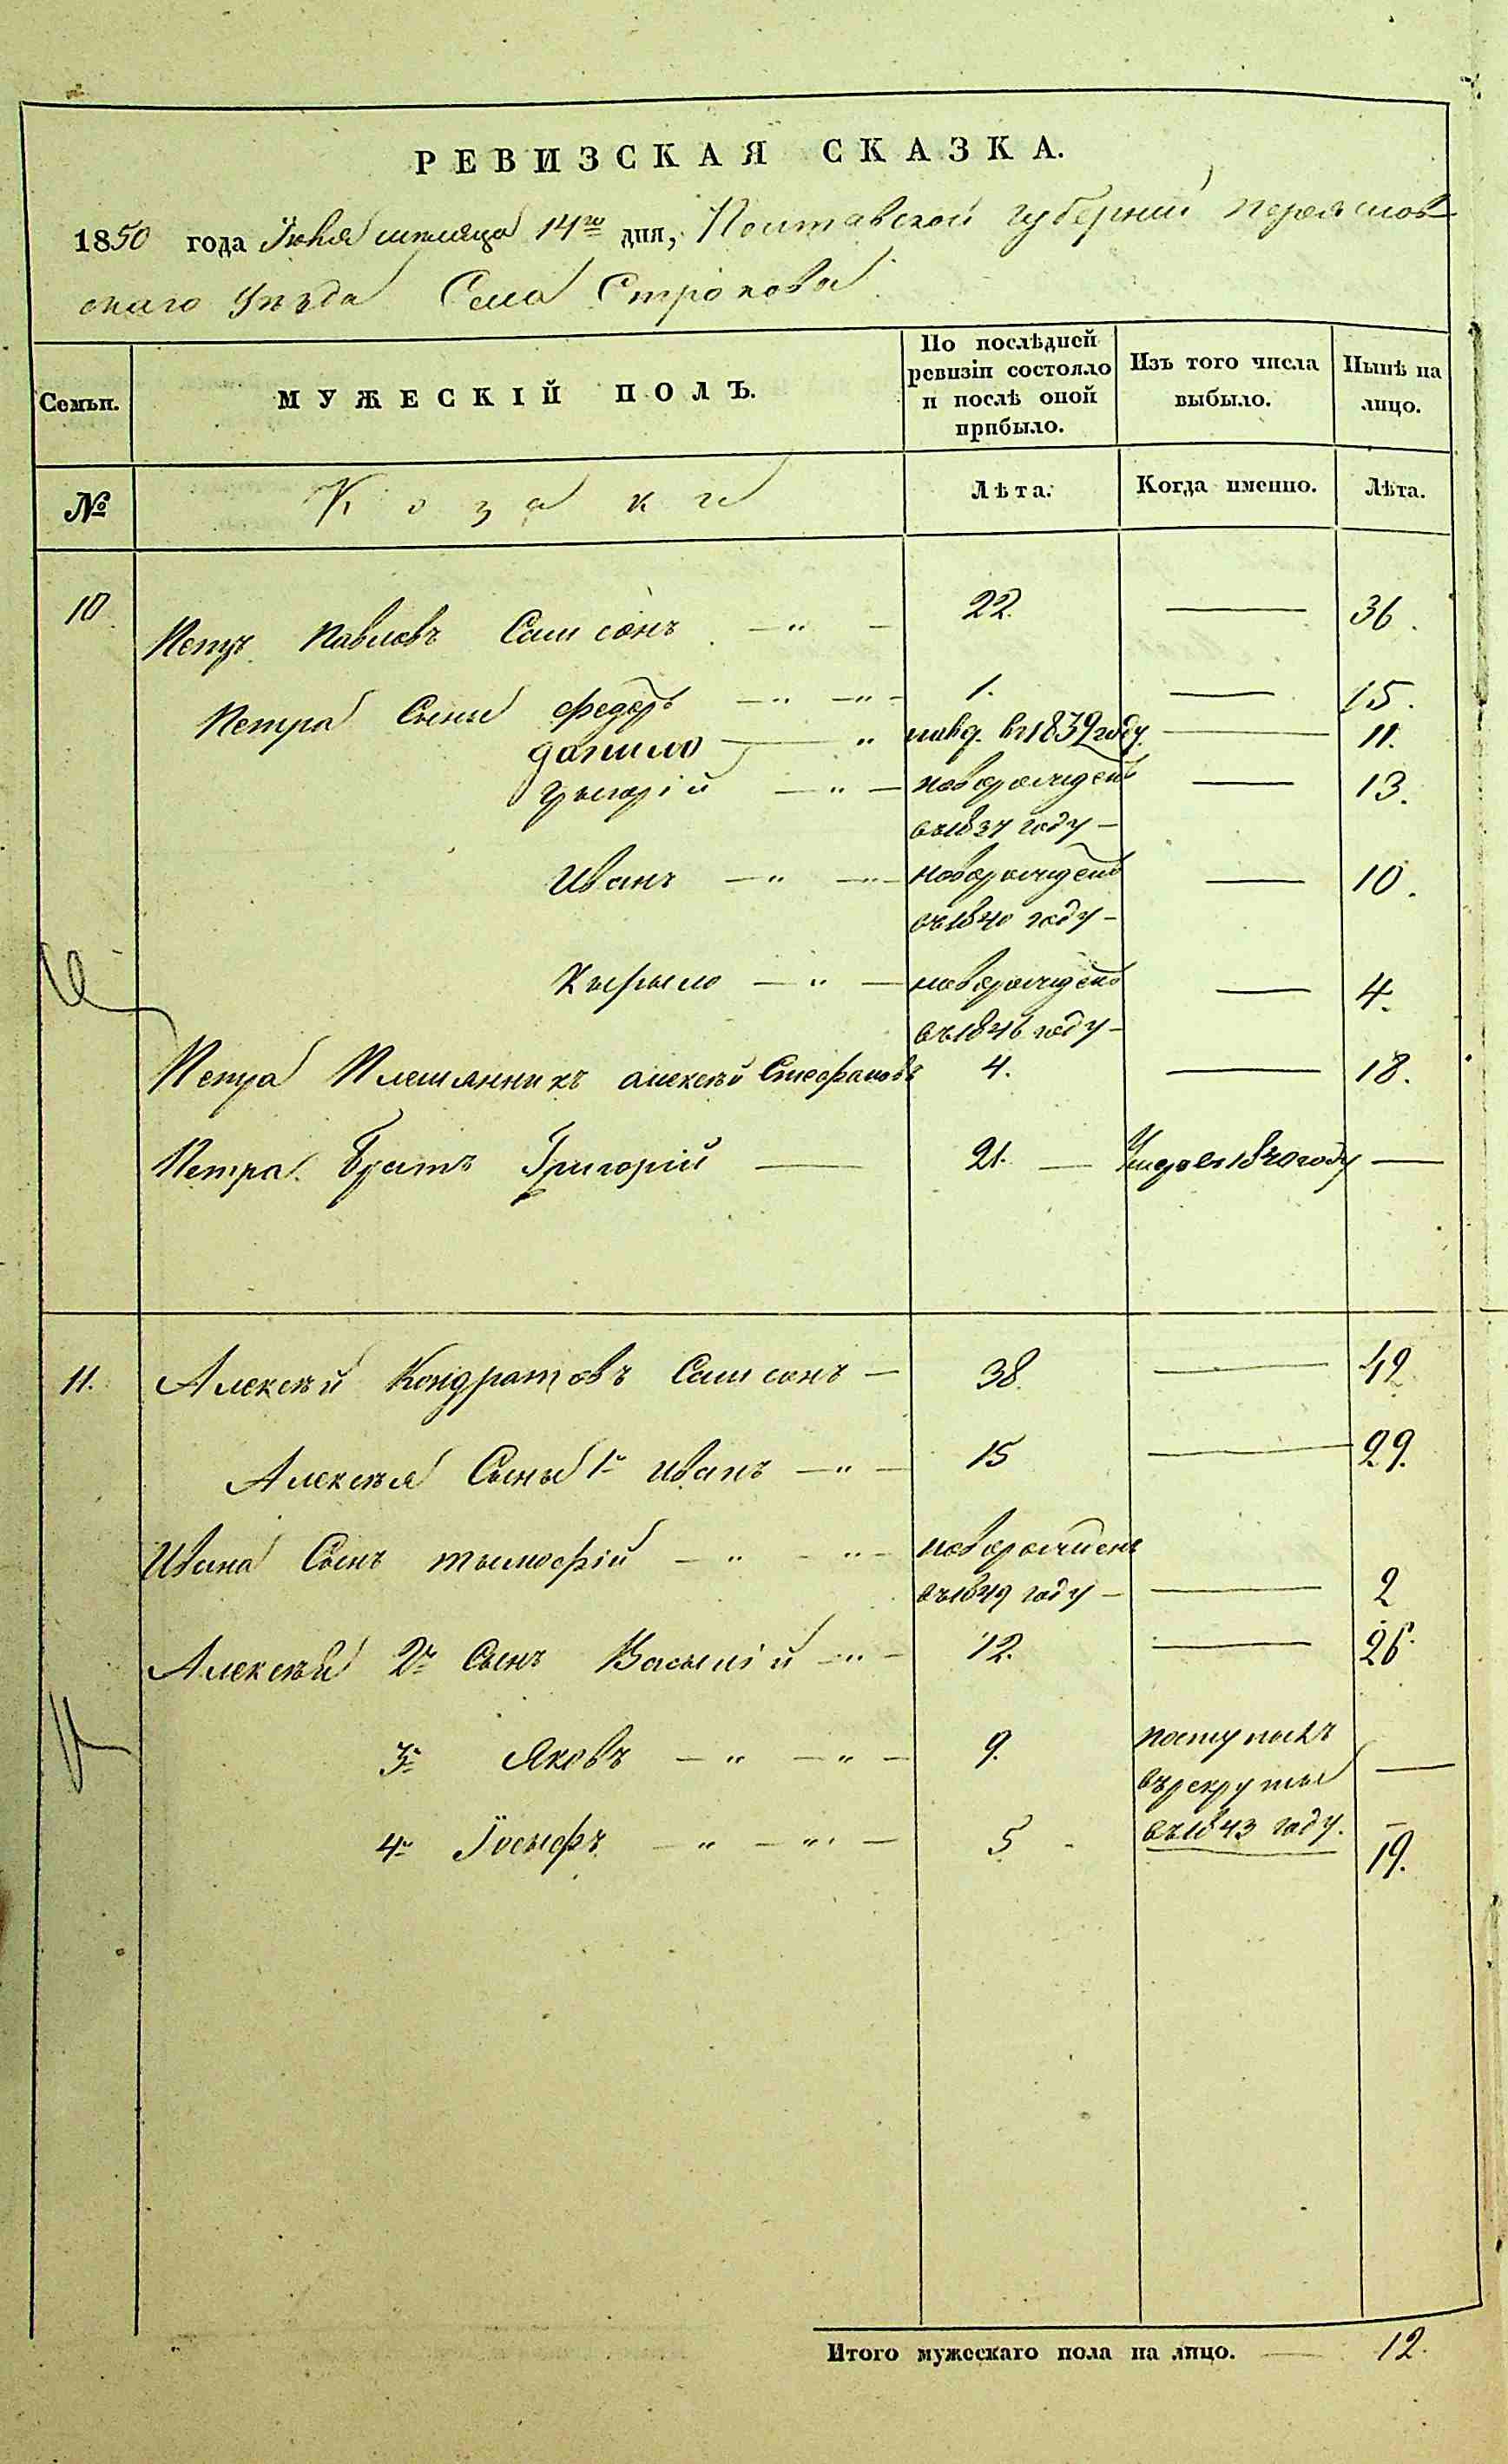 РЕВИЗСКАЯ СКАЗКА.
1850 года Іюня месяца 14го дня, Полтавской губерніи Переяслов-
скаго Уезда Села Строкова
Семьи.
МУЖЕСКІЙ ПОЛЪ.
По послѣдней ревизіи состояло и послѣ оной прибыло.
Изъ того числа выбыло.
Нынѣ на лицо.
№
Козаки
Лѣта.
Когда именно.
Лѣта.
10 Петръ Павловъ Самсонъ — " — 22. — 36.
Петра Сыны Федоръ — " — " — 1. — 15.
Данило — " в 1839 году. — 11.
Грыгорій — " — новорожденъ — 13.
въ 1837 году —
Иванъ — " — " — новорожденъ — 10.
въ 1840 году —
Кырыло — " — новорожденъ — 4.
въ 1846 году —
Петра Племянникъ Алексѣй Стефановъ 4. — 18.
Петра Братъ Григорій — 21. — году —
11. Алексѣй Кондратовъ Самсонъ — 38. —
Алексѣя Сыны 1й Иванъ — " — 15 — 29.
Ивана Сынъ Тымофій — " — " — новорожденъ
въ 1849 году — — 2
Алексѣй 2й Сынъ Васылій — " — 12. — 26.
3й Яковъ — " — " — 9. поступилъ —
въ рекруты
4й Іосыфъ — " — " — 5 - въ 1843 году. — 19.
Итого мужескаго пола на лицо. — 12.